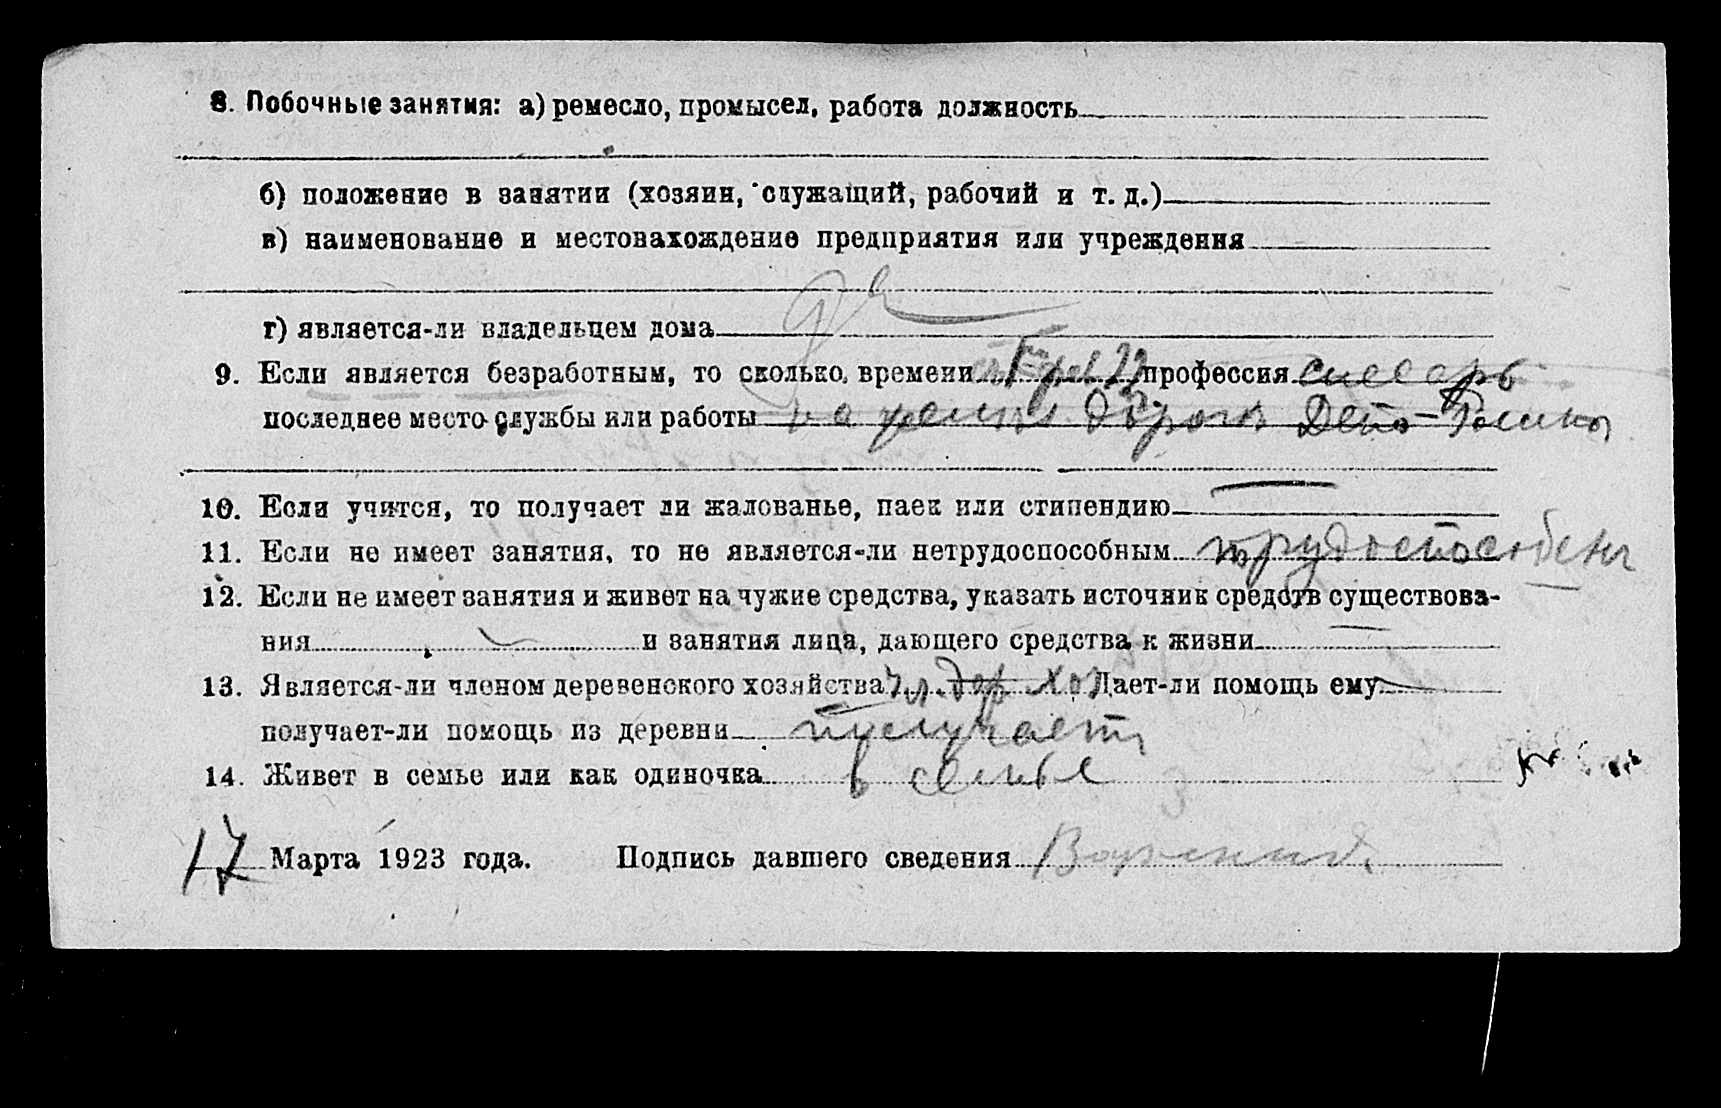 8. Побочные занятия: а) ремесло, промысел, работа должность
б) положение в занятии (хозяин, служащий, рабочий и т. д.)
в) наименование и местонахождение предприятия или учреждения
г) является-ли владельцем дома да
9. Если является безработным, то сколько времени профессия слесарь
последнее место службы или работы на желез дороге Депо
10. Если учится, то получает ли жалованье, паек или стипендию
11. Если не имеет занятия, то не является-ли нетрудоспособным трудоспособен
12. Если не имеет занятия и живет на чужие средства, указать источник средств существова-
ния и занятия лица, дающего средства к жизни
13. Является-ли членом деревенского хозяйства чл. дер. хоз Дает-ли помощь ему
получает-ли помощь из деревни получает
14. Живет в семье или как одиночка в семье
17 Марта 1923 года. Подпись давшего сведения